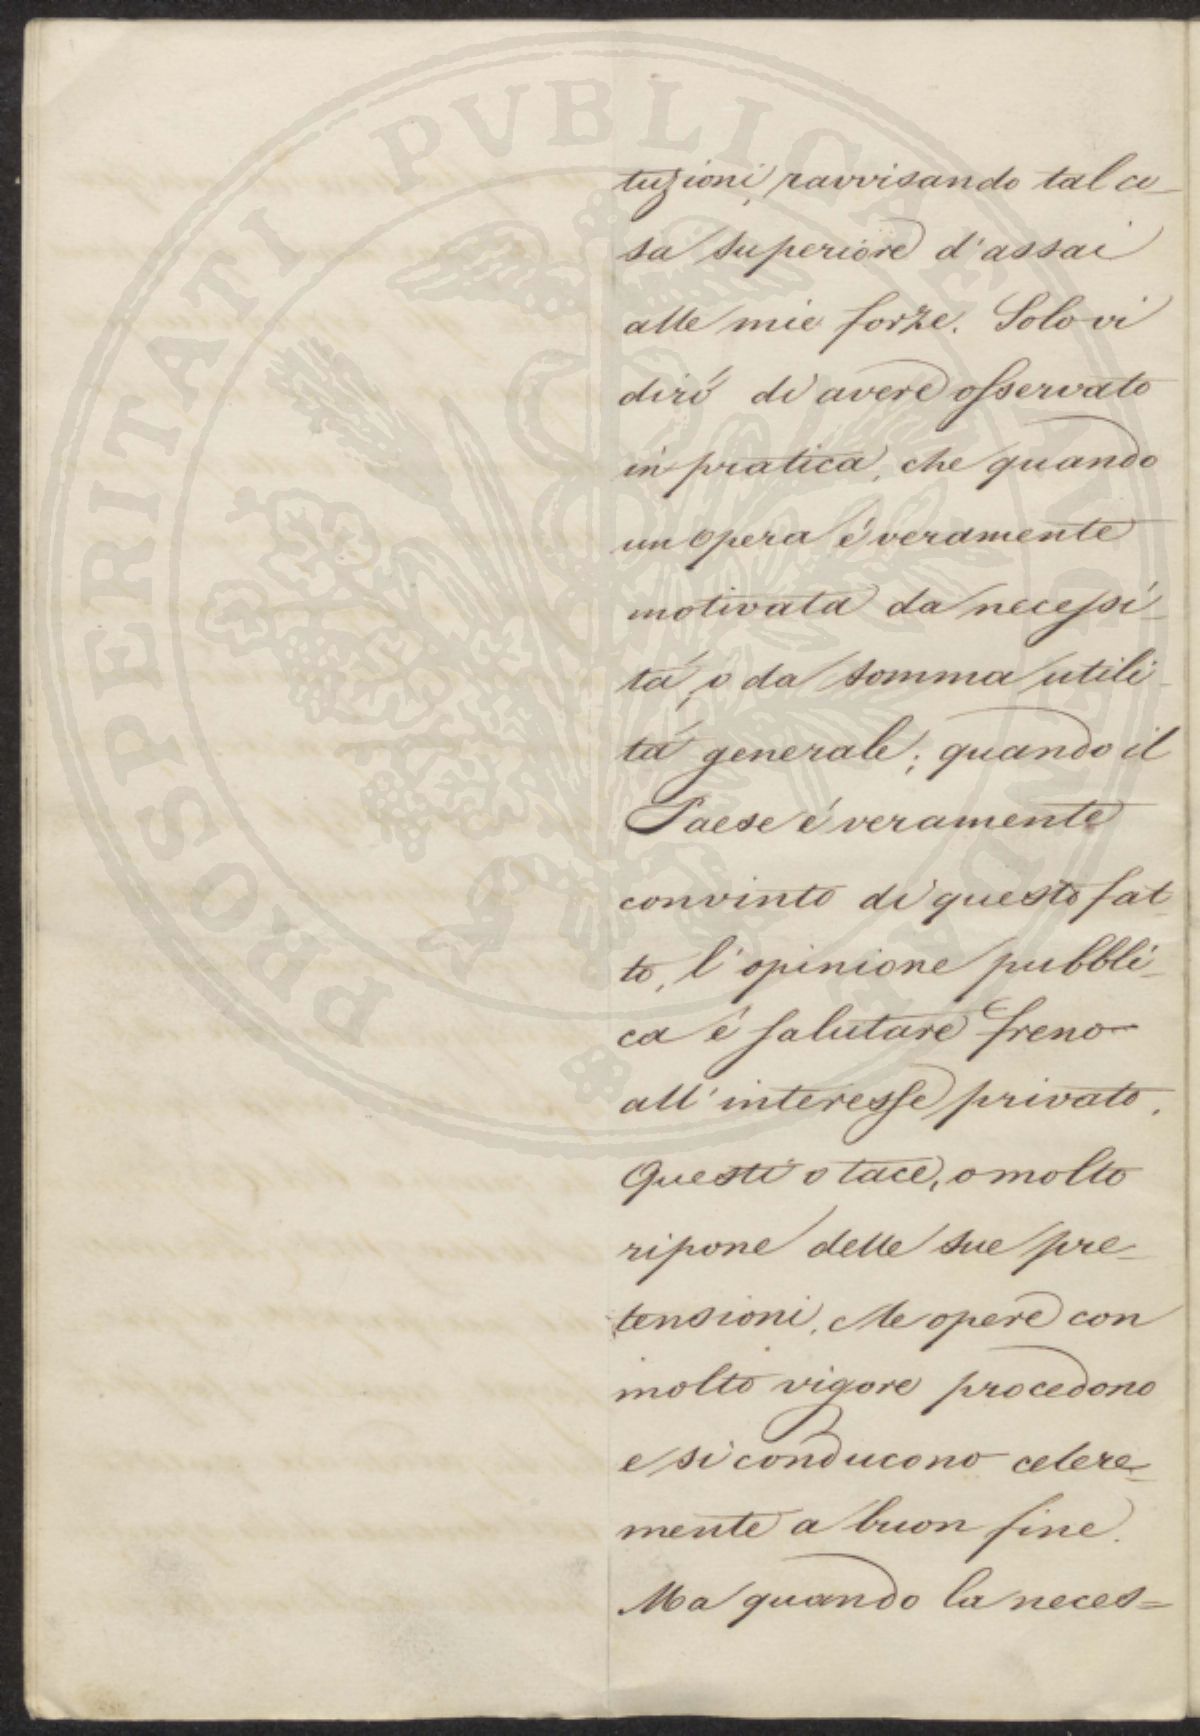 PROSPERITATI PVBLICAE AVGENDAE
tuzioni, ravvisando tal co-
sa superiore d'assai
alle mie forze. Solo vi
diró di avere osservato
in pratica, che quando
un opera é veramente
motivata da necessi-
tá, o da somma utili-
tá generale; quando il
Paese é veramente
convinto di questo fat-
to, l'opinione pubbli-
ca é salutare freno
all'interesse privato.
Questi o tace, o molto
ripone delle sue pre-
tensioni. Le opere con
molto vigore procedono
e si conducono celere-
mente a buon fine.
Ma quando la neces=